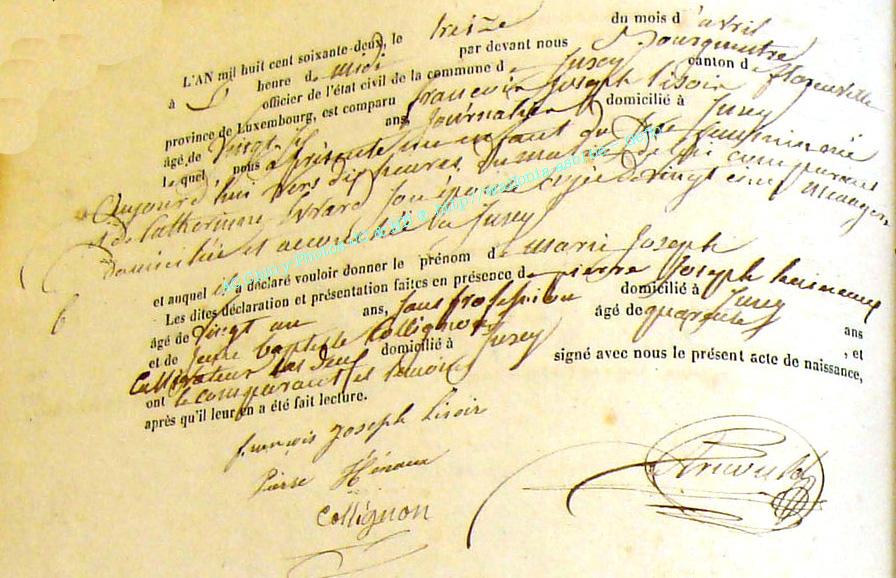 L'AN mil huit cent soixante-deux, le treize du mois d'avril
à heure de midi par devant nous Bourgmestre
officier de l'état civil de la commune de Jusey canton de florenville
province de Luxembourg, est comparu françois Joseph Lisoir
âgé de vingt ans, Journalier domicilié à Jusey
lequel, nous a présenté un enfant du sexe féminin née
aujourd'hui vers dix heures du matin de lui comparant
et de Catherine Evrard son épouse agée de vingt cinq ménagère
domiciliée et accouchée à Jusey
et auquel il a déclaré vouloir donner le prénom de Marie Joseph
Les dites déclaration et présentation faites en présence de pierre Joseph
âgé de vingt un ans, sans profession domicilié à Jusey
et de Jean baptiste Collignon âgé de quarante ans
Cultivateur domicilié à Jusey , et
ont le comparant et témoins signé avec nous le présent acte de naissance,
après qu'il leur en a été fait lecture.
françois Joseph Lisoir
Pierre Hénaux
Collignon